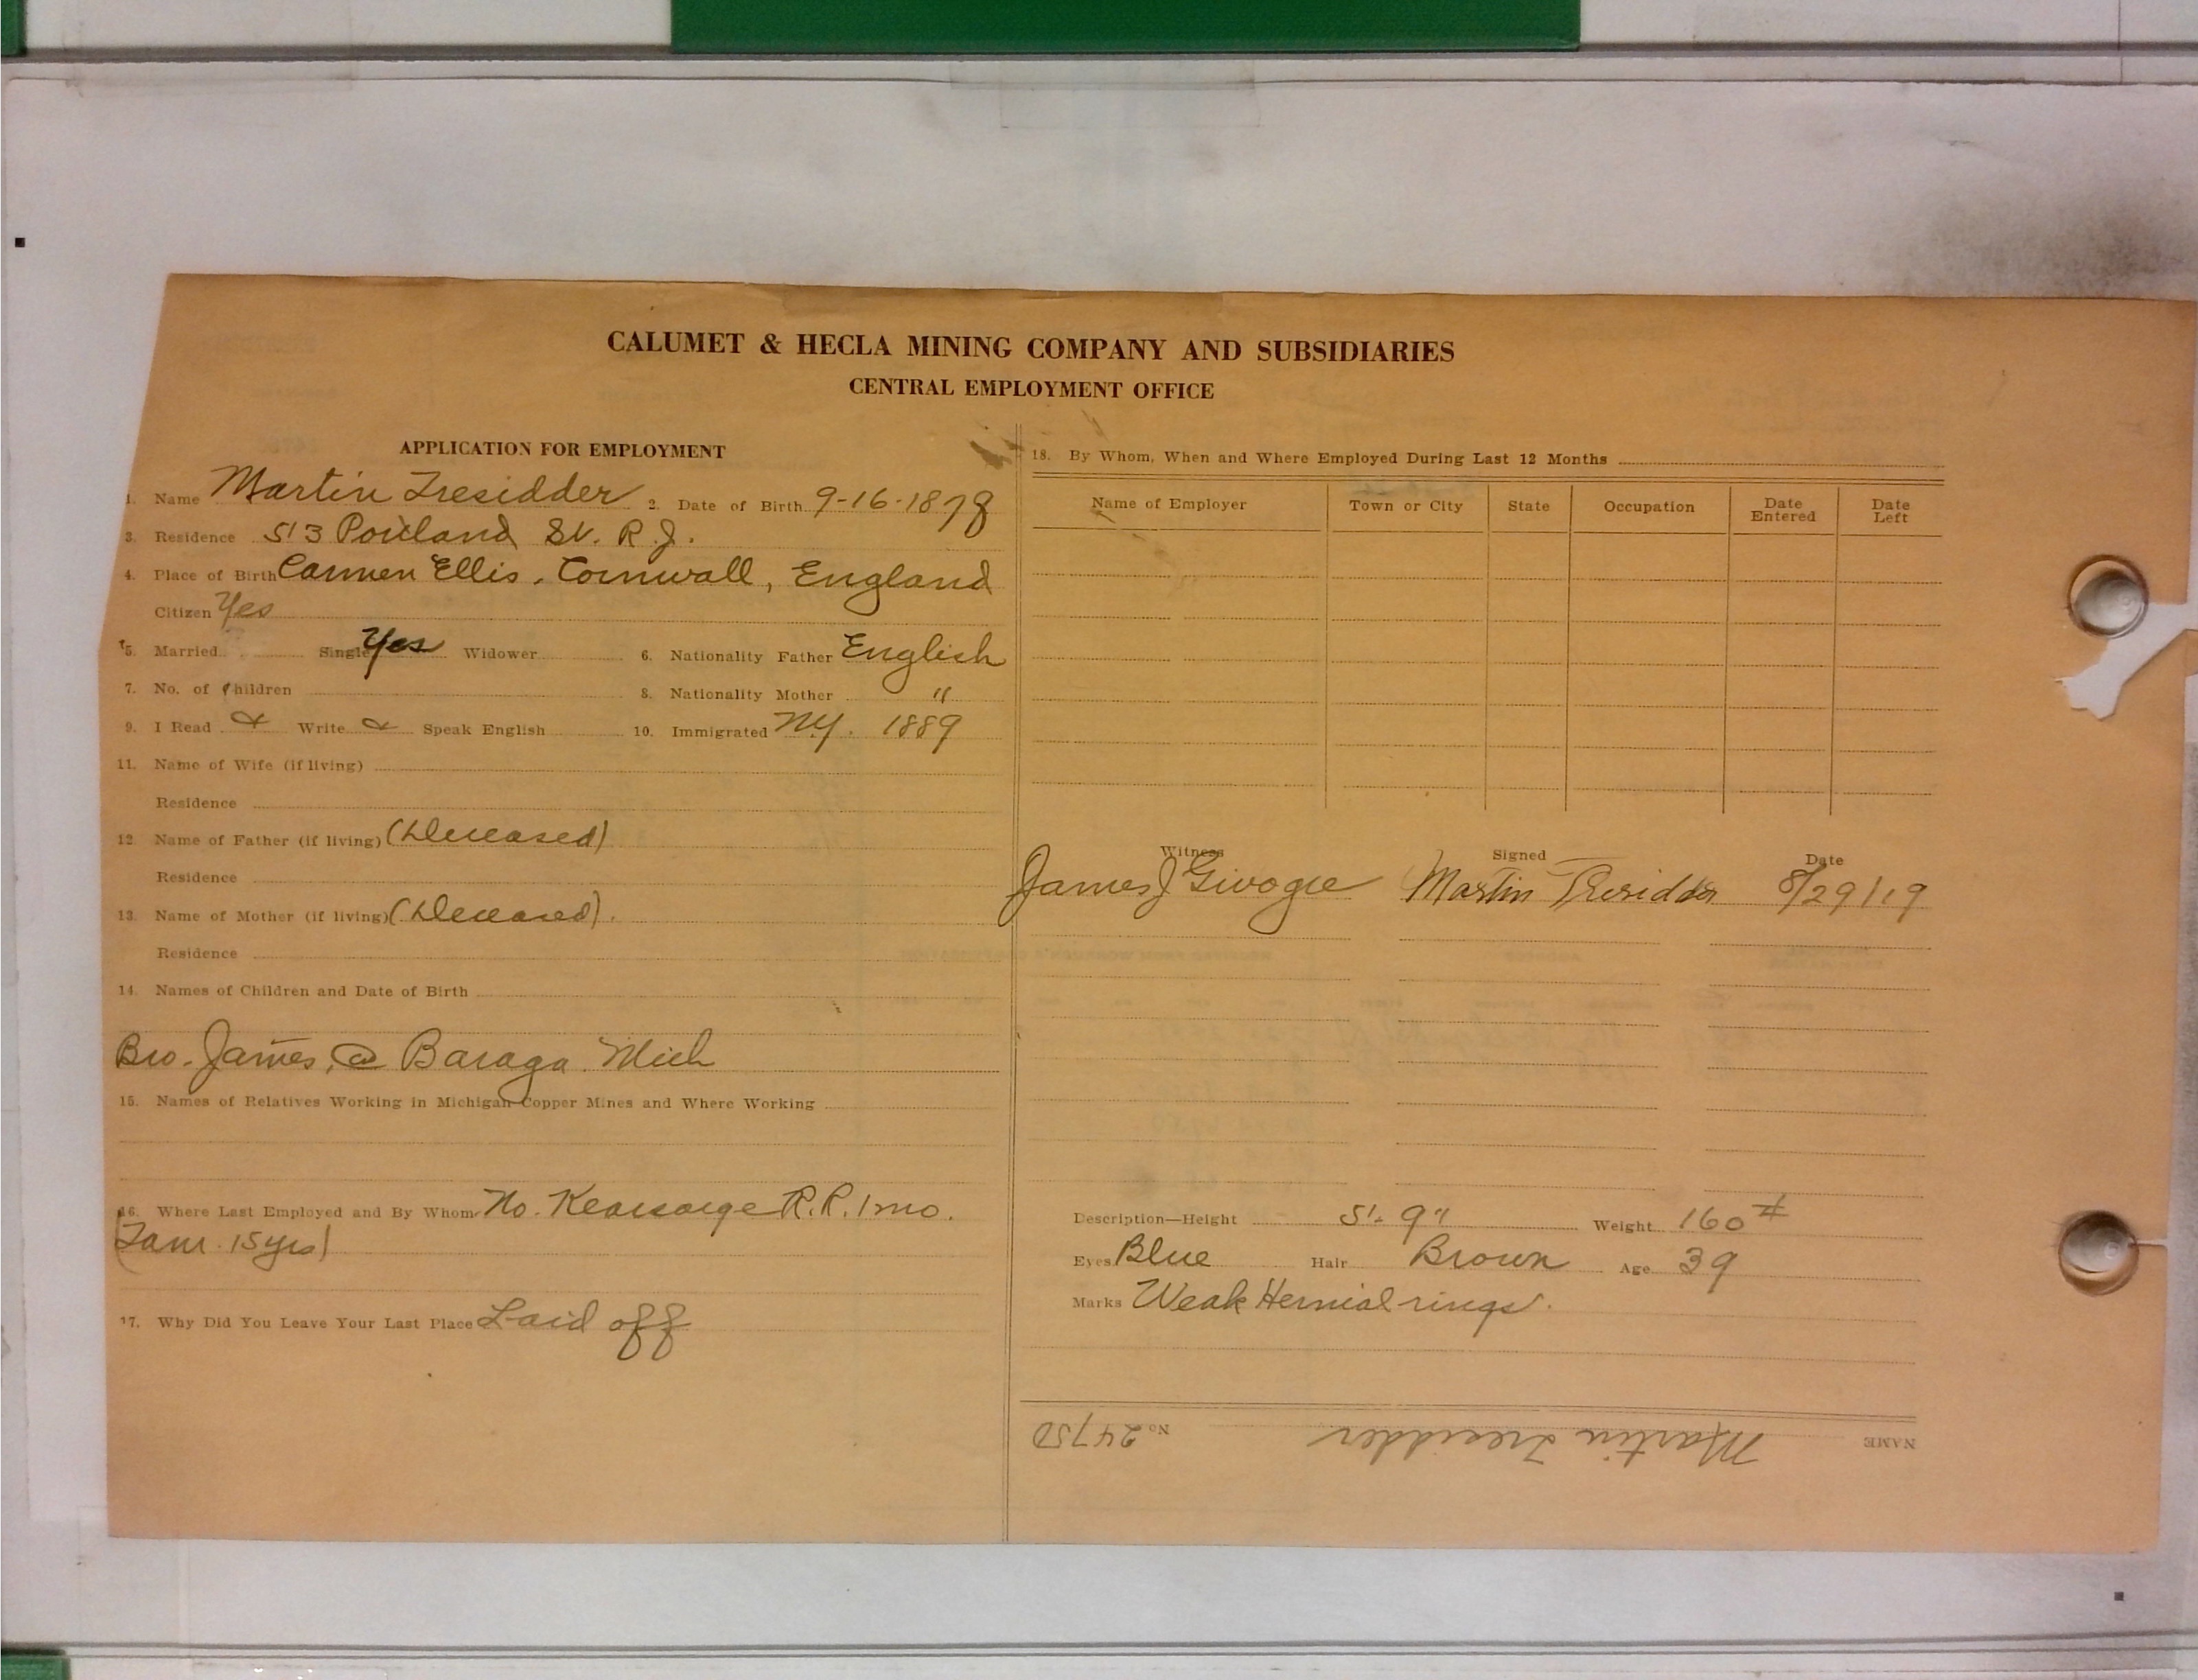 CALUMET & HECLA MINING COMPANY AND SUBSIDIARIES
CENTRAL EMPLOYMENT OFFICE
APPLICATION FOR EMPLOYMENT
1. Name Martin Tresidder 2. Date of Birth 9-16-1878
3. Residence 513 Portland St. R.J.
4. Place of Birth Carmen Ellis, Cornwall, England
Citizen Yes
5. Married Single Yes Widower 6. Nationality Father English
7. No. of Children 8. Nationality Mother "
9. I Read & Write & Speak English 10. Immigrated N.Y. 1889
11. Name of Wife (if living)
Residence
12. Name of Father (if living) (Deceased)
Residence
13. Name of Mother (if living) (Deceased).
Residence
14. Names of Children and Date of Birth
Bro. James, @ Baraga. Mich
15. Names of Relatives Working in Michigan Copper Mines and Where Working
16. Where Last Employed and By Whom No. Kearsarge R.R. 1 mo.
(Tam. 15 yrs)
17. Why Did You Leave Your Last Place Laid off
18. By Whom, When and Where Employed During Last 12 Months
Name of Employer Town or City State Occupation Date Entered Date Left
Witness Signed Date
James J Martin Tresidder 8/29/19
Description—Height 5'. 9" Weight 160#
Eyes Blue Hair Brown Age 39
Marks Weak Hernial rings.
NAME Martin Tresidder No. 24750